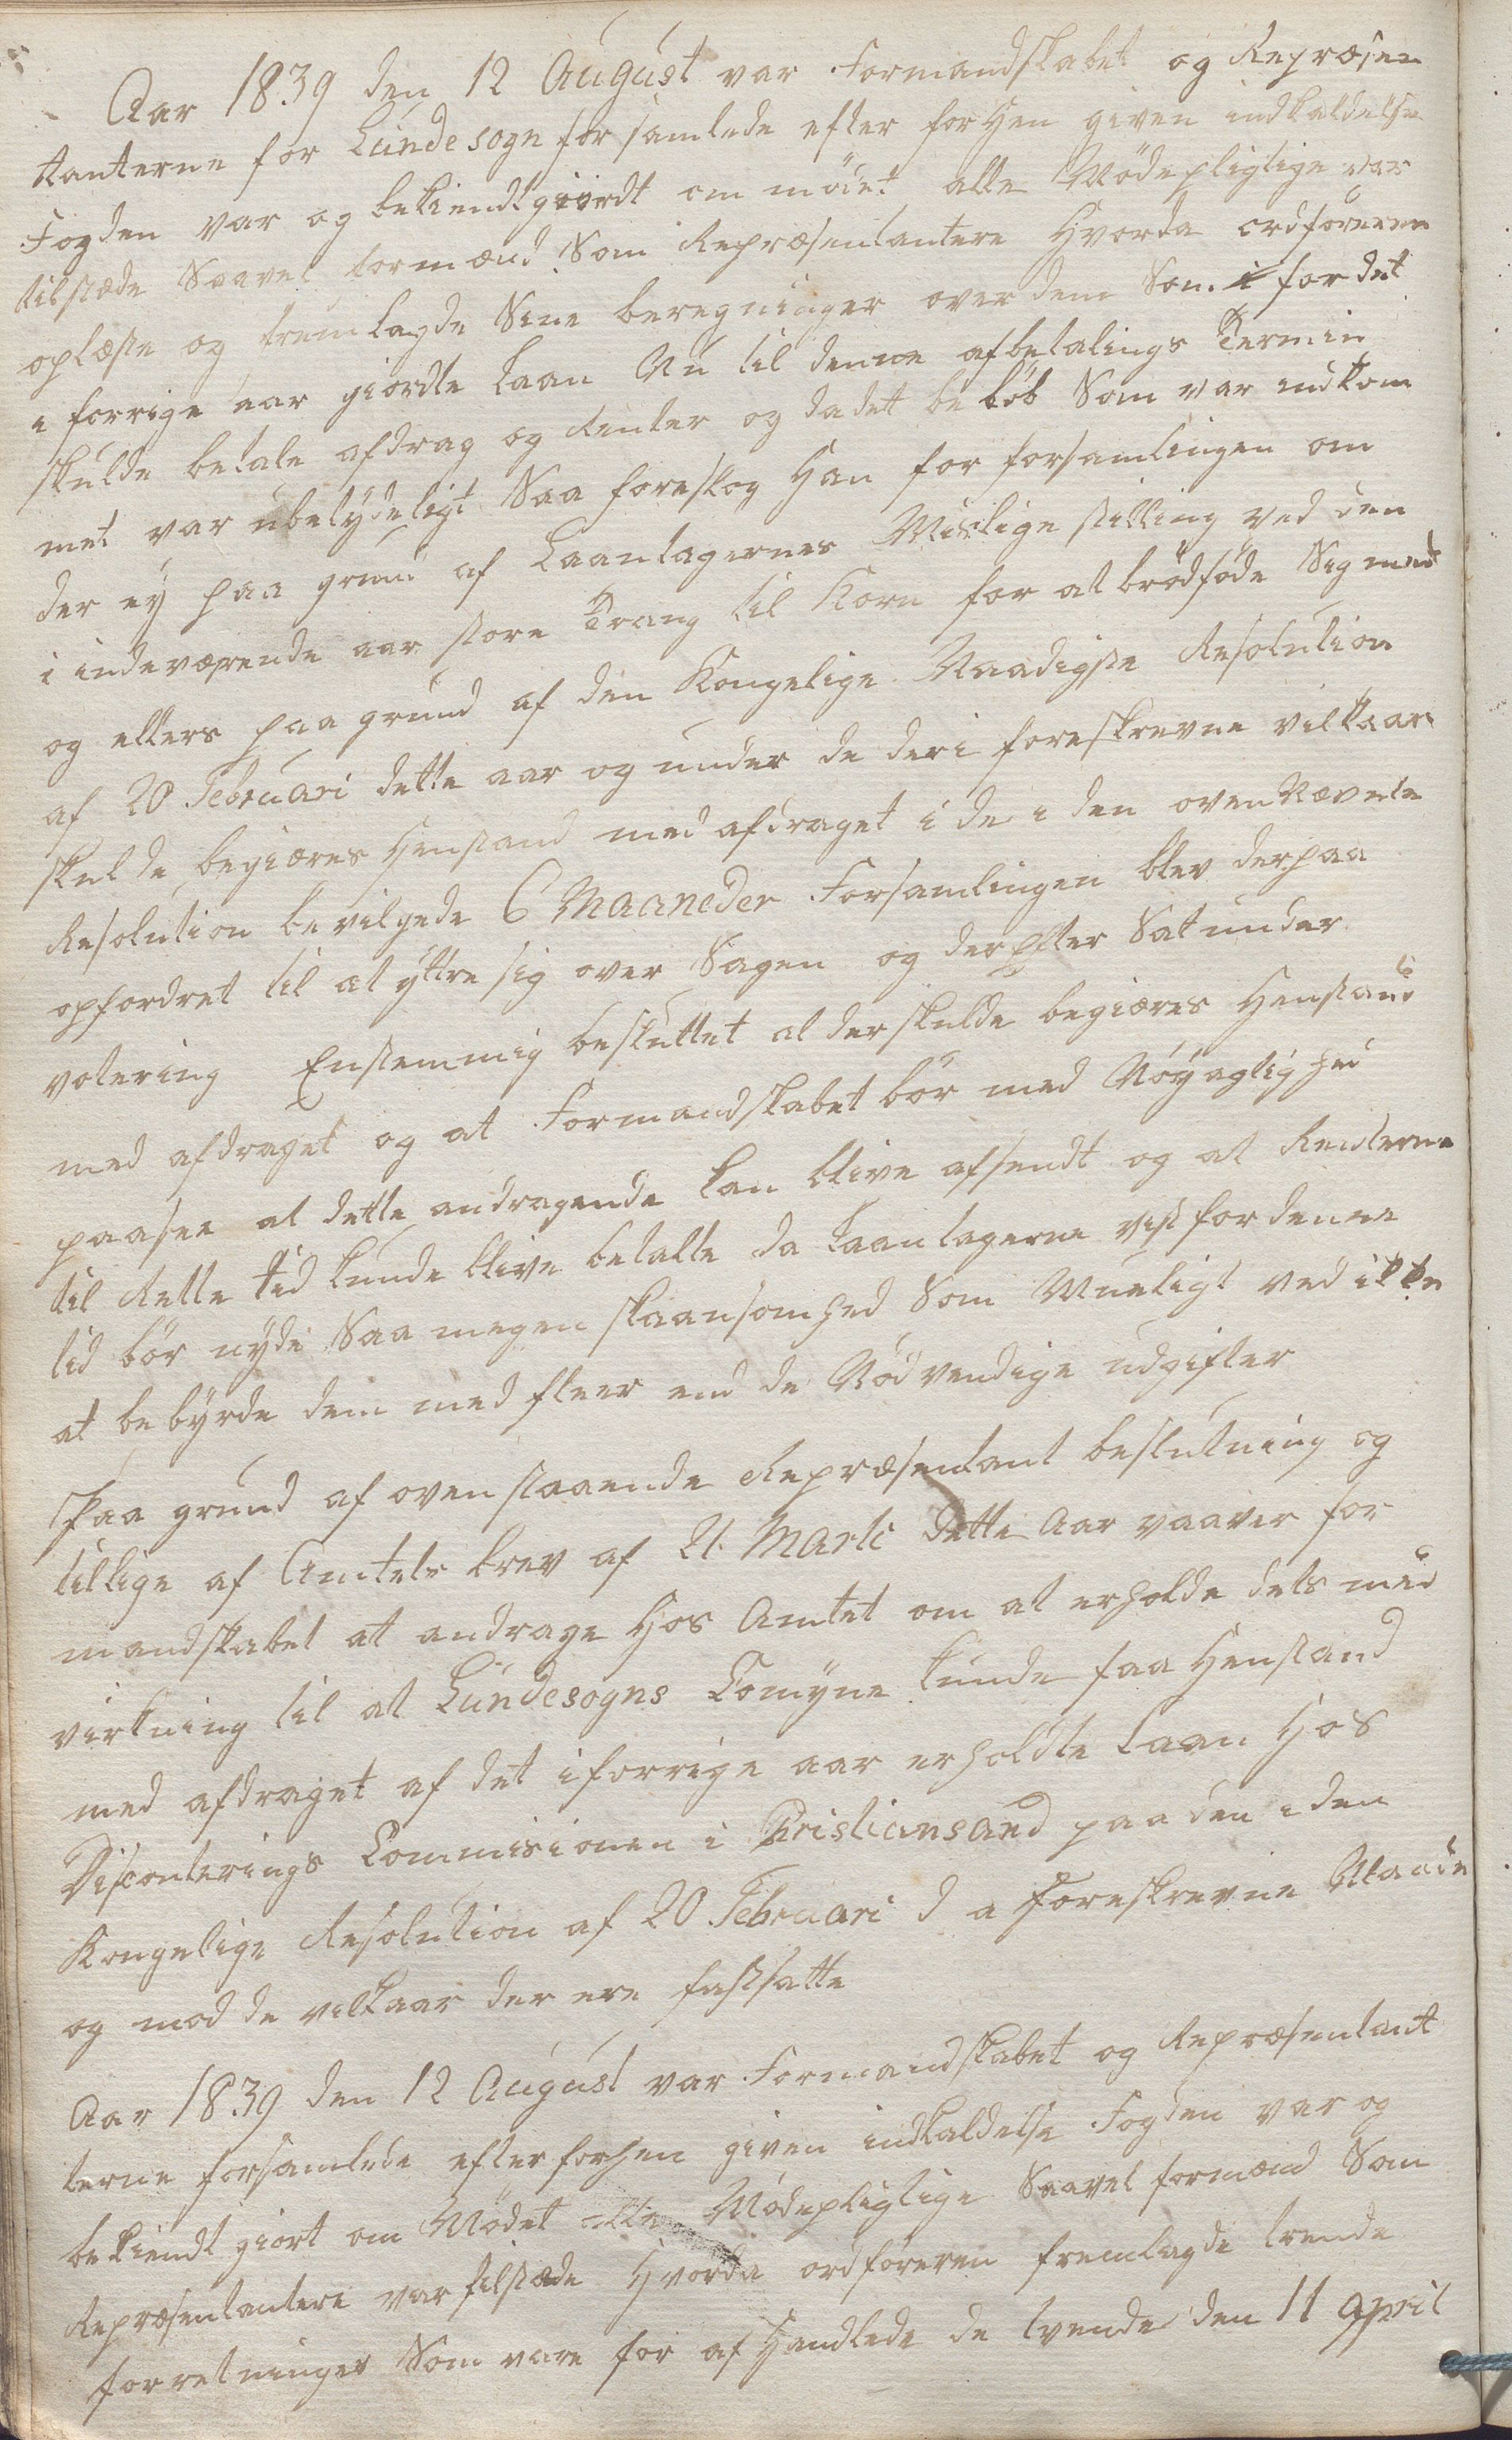 Aar 1839 den 12 August var Formandskabet og Repræsen
tanterne for Lunde sogn forsamlede efter forhen given indkaldelse
Fogden var og bekiendtgiordt om mödet alle Mödepligtige var
tilstæde Saavel formænd Som Repræsentantere Hvorda ordföreren
oplæste og fremlagde Sine beregninger over dem Som i for det
i forrige aar giordte Laan Nu til denne afbetalings Termin
skulde betale afdrag og Renter og da det belöb Som var indkom
met var ubetydeligt Saa foreslog Han for forsamlingen om
der ey paa grund af Laantagernes Mislige stilling ved den
i indeværende aar store Trang til Korn for at brödföde Sig med
og ellers paa grund af den Kongelige Naadigste Resolution
af 20 Februari dette aar og under de deri foreskrevne vilkaar
skulde begiæres Henstand med afdraget i de i den ovennævnte
Resolution bevilgede 6 Maaneder Forsamlingen blev derpaa
opfordret til at yttre sig over Sagen og derefter Sat under
votering Enstemmig besluttet at der skulde begiæres Henstand
med afdraget og at Formandskabet bör med Nöyagtighed
paasee at dette andragende kan blive afsendt og at Renterne
til Rette tid kunde blive betalte da Laantagerne vist for denne
tid bör nyde Saa megen skaansomhed Som Mueligt ved ikke
at bebyrde dem med fleer end de Nödvendige udgifter
Paa grund af ovenstaaende Repræsentant beslutning og
tillige af Amtets brev af 21 Marti dette Aar vaaver for
mandskabet at andrage Hos Amtet om at erholde dets med
virkning til at Lundesogns Comyne kunde faa Henstand
med afdraget af det i forrige aar erholdte Laan Hos
Disconterings Commisionen i Christiansand paa den i den
Kongelige Resolution af 20 Februari d a foreskrevne Maade
og mod de vilkaar der ere fastsatte
Aar 1839 den 12 August var Formandskabet og Repræsentant
terne forsamlede efter forhen given indkaldelse Fogden var og
bekiendt giort om Mödet alle Mödepligtige Saavel formænd Som
Repræsentantere var tilstæde Hvorda ordföreren fremlagde trende
forretninger Som vare for afHandlede de tvende den 11 April